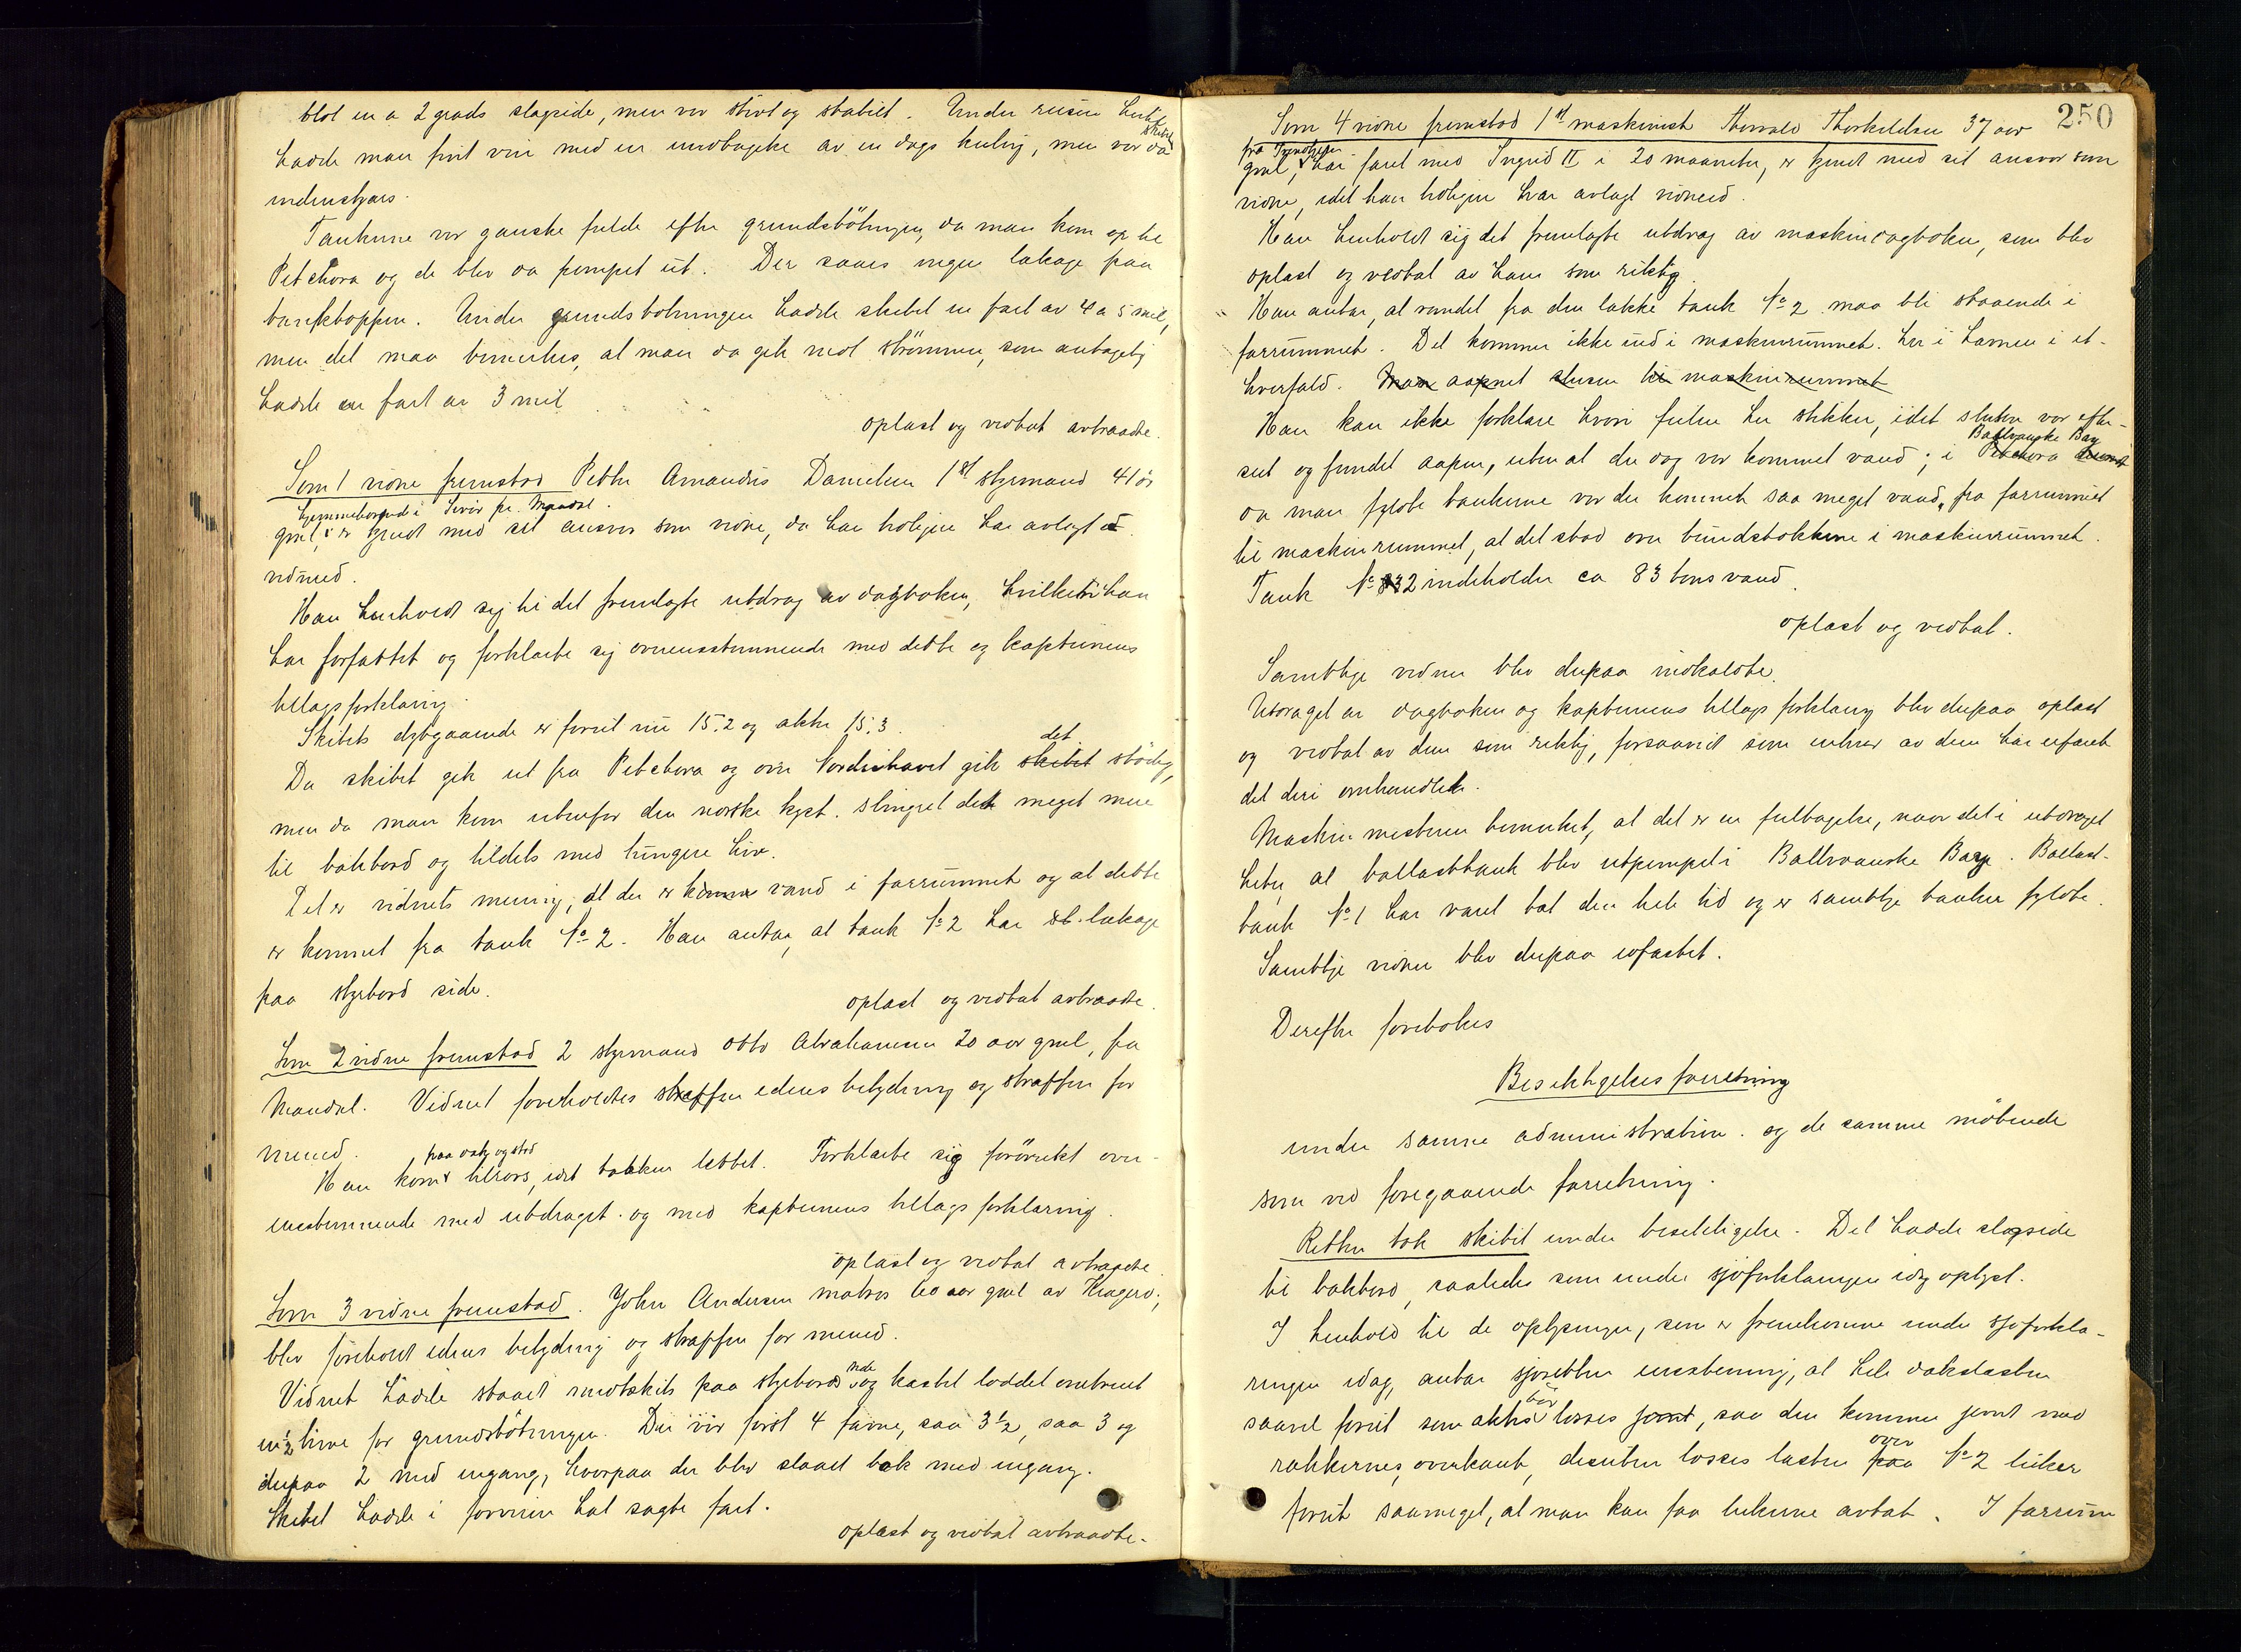 blot en a 2 grads slagside, men var stivt og stabilt. Under reisen hertil
hadde man fint veir med en undtagelse av en dags kuling, men var da
indenskjærs.
Tankene var ganske fulde efter grundstötningen, da man kom op til
Petchora og de blev da pumpet ut. Der saaes ingen lækage paa
tanktoppen. Under grundstötningen hadde skibet en fart av 4 a 5 mil,
men det maa bemerkes, at man da gik mot strömmen, som antagelig
hadde en fart av 3 mil
oplæst og vedtat avtraadte.
Som 1 vidne fremstod Petter Amandus Danielsen 1st styrmand 41 år
hjemmehörende i pr. Mandal.
gml, er kjendt med sit ansvar som vidne, da han tidligere har avlagt
vidneed.
Han henholdt sig til det fremlagte utdrag av dagboken, hvilket han
har forfattet og forklarte sig overensstemmende med dette og kapteinens
tillægsforklaring.
Skibets dybgaaende er forut nu 15.2 og akter 15.3.
det
Da skibet gik ut fra Petchora og over Nordishavet gik skibet stödig,
men da man kom utenfor den norske kyst. slingret det meget mere
til bakbord og tildels med tungere hiv.
Det er vidnets mening, at der er kommet vand i farrummet og at dette
er kommet fra tank No 2. Han antar, at tank No 2 har lækage
paa styrbord side.
oplæst og vedtat avtraadte.
Som 2 vidne fremstod 2 styrmand Otto Abrahamsen 20 aar gml, fra
Mandal. Vidnet foreholdtes straffen edens betydning og straffen for
mened.
paa vakt og stod
Han kom tilrors, idet taaken lettet. Forklarte sig forövrikt over-
ensstemmende med utdraget og med kapteinens tillægsforklaring.
oplæst og vedtat avtraadte
Som 3 vidne fremstod. John Andersen matros 60 aar gml av Kragerö,
blev foreholdt edens betydning og straffen for mened.
Vidnet hadde staaet midtskibs paa styrbord side og kastet loddet omtrent
en ½ time för grundstötningen. Der var först 4 favne, saa 3½, saa 3 og
derpaa 2 med engang, hvorpaa der blev slaaet bak med engang.
Skibet hadde i forveien hat sagte fart.
oplæst og vedtat avtraadte.
250
Som 4 vidne fremstod 1st maskinist Thorvald Thorkildsen 37 aar
gml, har faret med Ingrid II i 20 maaneder, er kjendt med sit ansvar som
vidne, idet han tidligere har avlagt vidneed.
Han henholdt sig det fremlagte utdrag av maskindagboken, som blev
oplæst og vedtat av ham som riktig.
Han antar, at vandet fra den lække tank No 2 maa bli staaende i
farrummet. Det kommer ikke ind i maskinrummet. her i havnen i et-
hverfald. Man aapnet slusen til maskinrummet
Han kan ikke forklare hvori feilen her stikker, idet slusen var efter-
Baltvanske Bay
seet og fundet aapen, uten at der dog var kommet vand; i Petchora
da man fyldte tankerne var der kommet saa meget vand, fra farrummet
til maskinrummet, at det stod over bundstokkene i maskinrummet.
Tank No 2 indeholder ca 83 tons vand.
oplæst og vedtat.
Samtlige vidner blev derpaa indkaldte.
Utdraget av dagboken og kapteinens tillægsforklaring blev derpaa oplæst
og vedtat av dem som riktig, forsaavidt som enhver av dem har erfaret
det deri omhandlede.
Maskinmesteren bemerket, at det er en feiltagelse, naar det i utdraget
heter, at ballasttank blev utpumpet i Baltvanske Bay. Ballast-
tank No 1 har været tæt den hele tid og er samtlige tanker fyldte.
Samtlige vidner blev derpaa edfæstet.
Derefter foretokes
Besiktigelsesforretning
under samme administration. og de samme mötende
som ved foregaaende forretning.
Retten tok skibet under besiktigelse. Det hadde slagside
til bakbord, saaledes som under sjöforklaringen idag oplyst.
I henhold til de oplysninger, som er fremkomne under sjöforkla-
ringen idag, antar sjöretten enstemmig, at hele dækslasten
saavel forut som akter bör losses jevnt, saa den kommer jevnt med
rækkernes overkant, desuten losses lasten paa over No 2 luker
forut saameget, at man kan faa lukerne avtat. I farrum